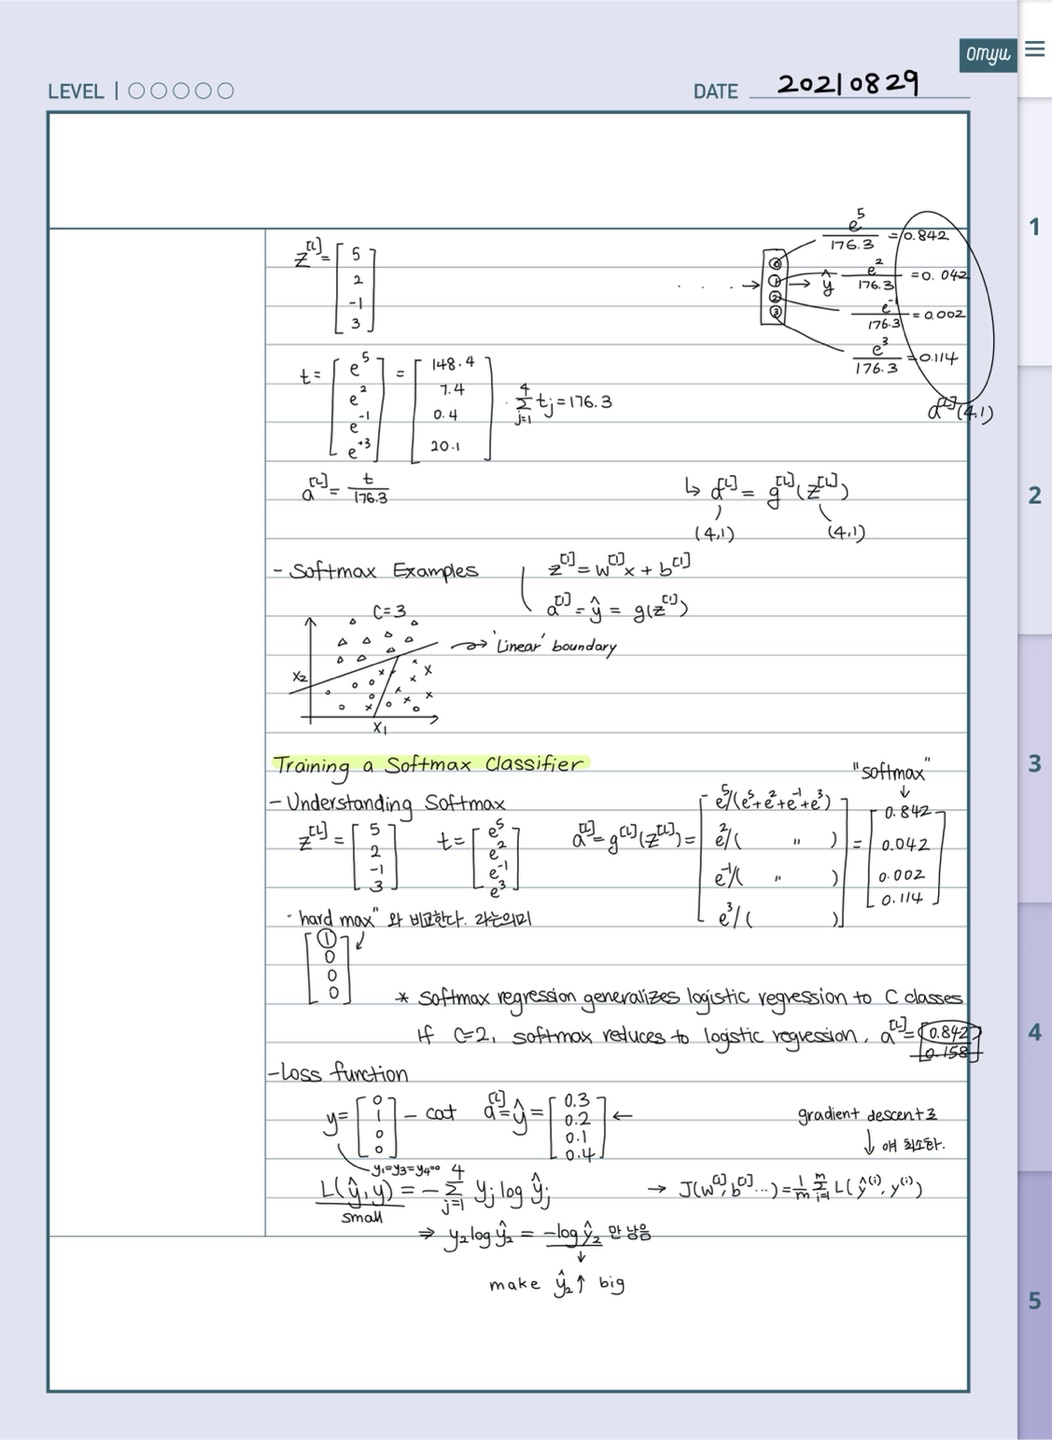 omyu
LEVEL | ○○○○○
DATE 20210829
z^[L] = [5 2 -1 3]
e^5/176.3 = 0.842
e^2/176.3 = 0.042
e^-1/176.3 = 0.002
e^3/176.3 = 0.114
0 1 2 3
· · · · → → ŷ
a^[L] (4,1)
t = [e^5 e^2 e^-1 e^+3] = [148.4 7.4 0.4 20.1] · Σ_{j=1}^{4} t_j = 176.3
a^[L] = t/176.3
↳ a^[L] = g^[L](z^[L])
(4,1) (4,1)
- Softmax Examples
z^[1] = w^[1]x + b^[1]
a^[1] = ŷ = g(z^[1])
C=3
'Linear' boundary
x2
x1
Training a Softmax Classifier
- Understanding Softmax
"softmax"
↓
z^[L] = [5 2 -1 3] t = [e^5 e^2 e^-1 e^3] a^[L] = g^[L](z^[L]) = [e^5/(e^5+e^2+e^-1+e^3) e^2/( " ) e^-1/( " ) e^3/( )] = [0.842 0.042 0.002 0.114]
"hard max" 와 비교한다. 라는의미
[1 0 0 0]
* softmax regression generalizes logistic regression to C classes
If C=2, softmax reduces to logistic regression. a^[L] = [0.842 0.158]
- Loss function
y = [0 1 0 0] - cat a^[L] = ŷ = [0.3 0.2 0.1 0.4] ←
gradient descent로
↓ 최소화.
y1=y3=y4=0
L(ŷ, y) = - Σ_{j=1}^{4} y_j log ŷ_j → J(w^[1], b^[1] ...) = 1/m Σ_{i=1}^{m} L(ŷ^(i), y^(i))
small
⇒ y2 log ŷ2 = -log ŷ2 만 남음
↓
make ŷ2 ↑ big
1
2
3
4
5